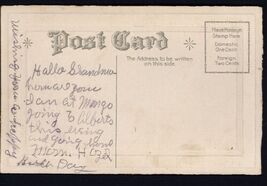 Post Card
The Address to be written
on this side.
Place Postage
Stamp Here
Domestic
One Cent
Foreign
Two Cents
Hallo Grandma
how are you
I am at Margo
going to Alberts
this eving
and going home
Morn.
Birth Day
Wishing you a Happy